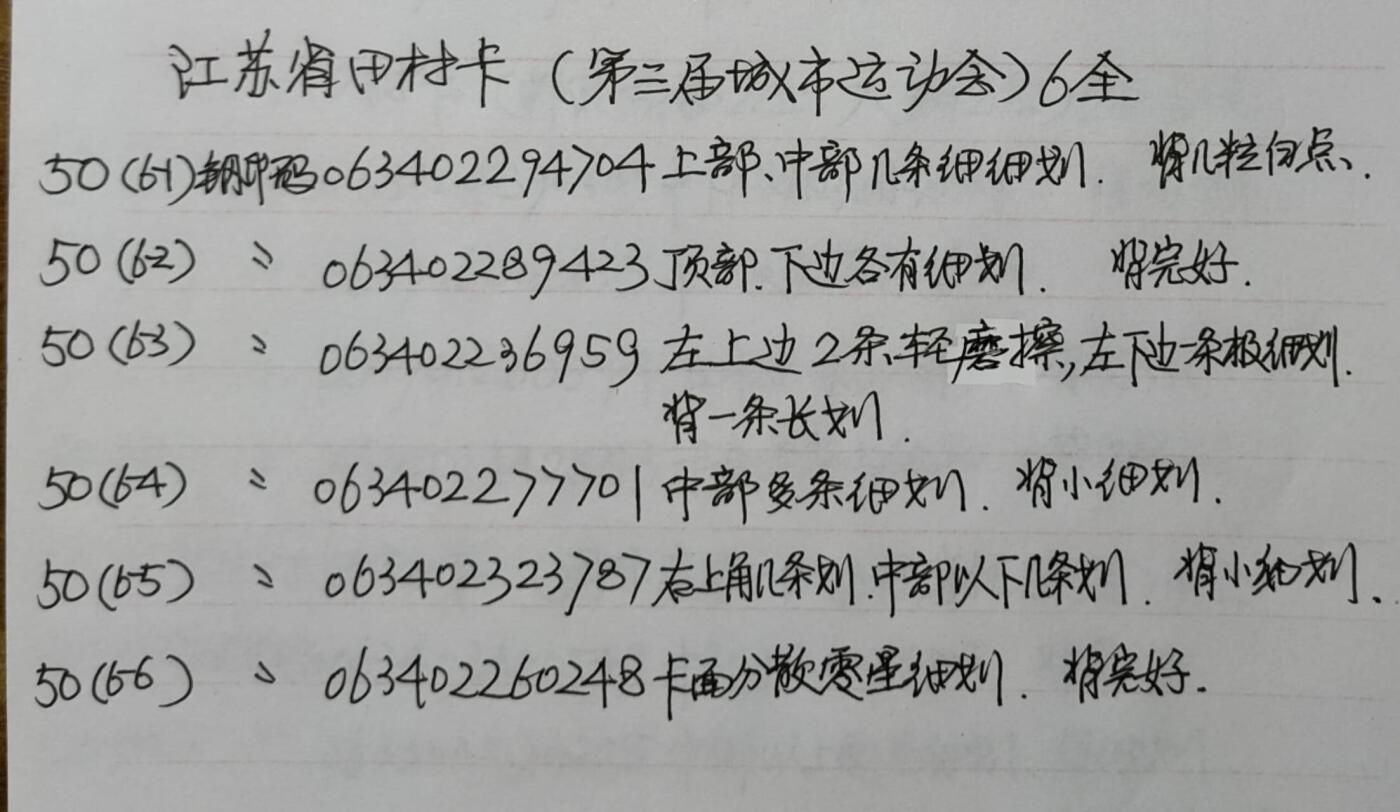 江苏省田村卡（第三届城市运动会）6全
50(6-1)钢印码063402294704上部、中部几条细细划. 背几粒白点、
50(6-2) 〃 063402289423顶部.下边各有细划. 背完好.
50(6-3) 〃 063402236959左上边2条轻磨擦,左下边一条极细划.
背一条长划.
50(6-4) 〃 063402277701中部多条细划. 背小细划.
50(6-5) 〃 063402323787右上角几条划.中部以下几条划. 背小细划.
50(6-6) 〃 063402260248卡面分散零星细划. 背完好.